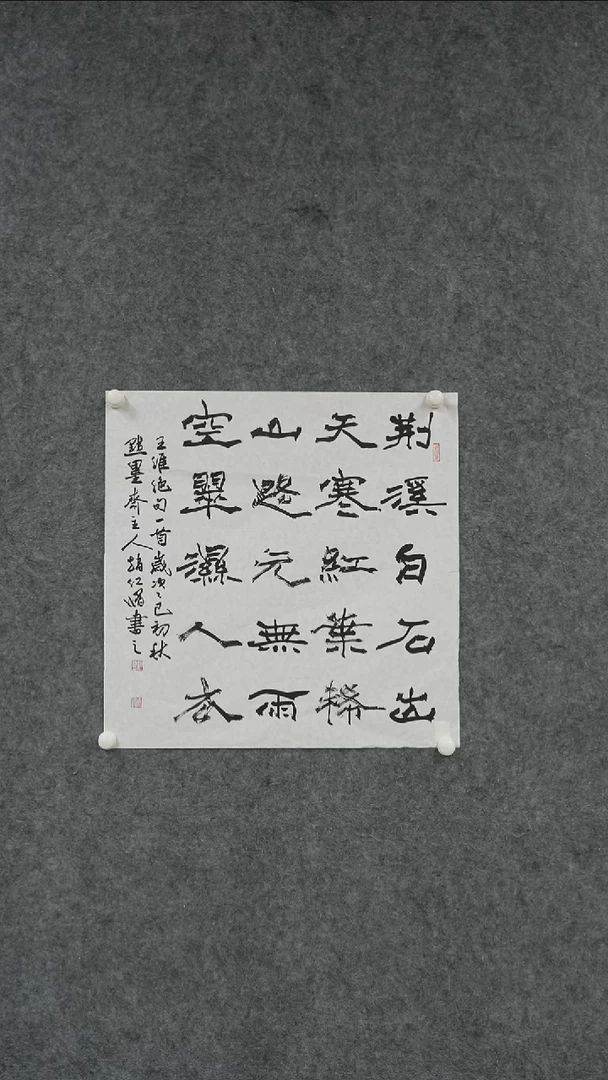 荆溪白石出
天寒紅葉稀
山路元無雨
空翠濕人衣
王維绝句一首歲次乙已初秋
點墨齋主人趙仁
書之